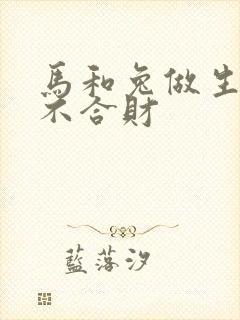 馬和兔做生
不合財
藍落汐